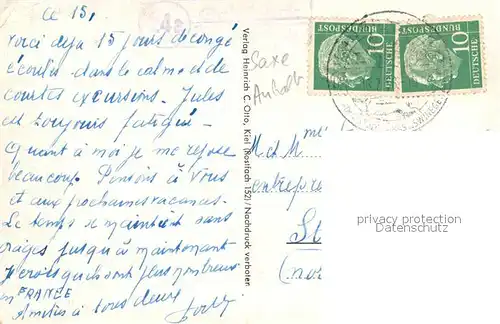 ce 15,
Voici déjà 15 jours de congé
écoulés dans le calme et de
courtes excursions. Jules
est toujours fatigué.
Quant à moi je me repose
beaucoup. Pensons à vous
et aux prochaines vacances.
Le temps se maintient sans
orages jusqu'à maintenant
je crois qu'ils sont plus nombreux
en FRANCE
Amitiés à tous deux
Verlag Heinrich C. Otto, Kiel (Postfach 152) / Nachdruck verboten
Saxe
Anhalt
DEUTSCHE BUNDESPOST 10
DEUTSCHE BUNDESPOST 10
M et Mme
entrepre
St
(no
privacy protection
Datenschutz